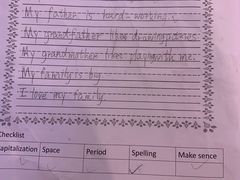 My father is hard-working.
My grandfather likes drawing
My grandmother likes playing with me.
My family is by
I love my family.
Checklist
apitalization Space Period Spelling Make sence